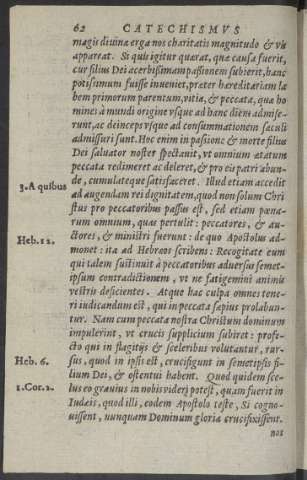 62 CATECHISMVS
magis diuina erga nos charitatis magnitudo & vis
appareat. Si quis igitur quærat, quæ causa fuerit,
cur filius Dei acerbißimam paßionem subierit, hanc
potißimum fuisse inueniet, præter hæreditariam la
bem primorum parentum, vitia, & peccata, quæ ho
mines à mundi origine vsque ad hanc diem admise-
runt, ac deinceps vsque ad consummationem sæculi
admissuri sunt. Hoc enim in paßione & morte filius
Dei saluator noster spectauit, vt omnium ætatum
peccata redimeret ac deleret, & pro eis patri abun-
de, cumulateque satisfaceret. Illud etiam accedit
3. A quibus
ad augendam rei dignitatem, quod non solum Chri
stus pro peccatoribus passus est, sed etiam pœna-
rum omnium, quas pertulit: peccatores, & au-
ctores, & ministri fuerunt: de quo Apostolus ad-
Heb. 12.
monet: ita ad Hebræos scribens: Recogitate eum
qui talem sustinuit à peccatoribus aduersus semet-
ipsum contradictionem, vt ne fatigemini animis
vestris deficientes. Atque hac culpa omnes tene-
ri iudicandum est, qui in peccata sæpius prolabun-
tur. Nam cum peccata nostra Christum dominum
impulerint, vt crucis supplicium subiret: profe-
cto qui in flagitijs & sceleribus volutantur, rur-
Heb. 6.
sus, quod in ipsis est, crucifigunt in semetipsis fi-
lium Dei, & ostentui habent. Quod quidem sce-
1. Cor. 2.
lus eo grauius in nobis videri potest, quam fuerit in
Iudæis, quod illi, eodem Apostolo teste, Si cogno-
uissent, nunquam Dominum gloriæ crucifixissent.
nos